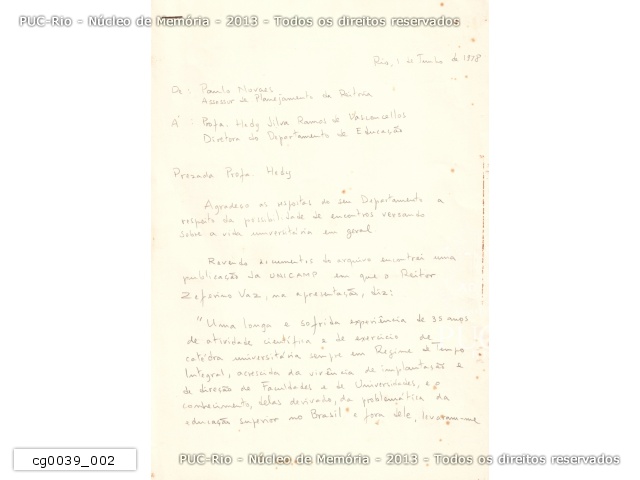 PUC-Rio - Núcleo de Memória - 2013 - Todos os direitos reservados
Rio, 1 de Junho de 1978
De: Paulo Novaes
Assessor de Planejamento da Reitoria
À: Profa. Hedy Silva Ramos de Vasconcellos
Diretora do Departamento de Educação
Prezada Profa. Hedy
Agradeço as respostas do seu Departamento a
respeito da possibilidade de encontros versando
sobre a vida universitária em geral
Revendo documentos do arquivo encontrei uma
publicação da UNICAMP em que o Reitor
Zeferino Vaz, na apresentação, diz:
"Uma longa e sofrida experiência de 35 anos
de atividade científica e de exercício de
catedra universitária sempre em Regime de Tempo
Integral, acrescida da vivência de implantação e
de direção de Faculdades e de Universidades, e o
conhecimento, delas derivado, da problemática da
educação superior no Brasil e fora dele, levaram-me
cg0039_002
PUC-Rio - Núcleo de Memória - 2013 - Todos os direitos reservados